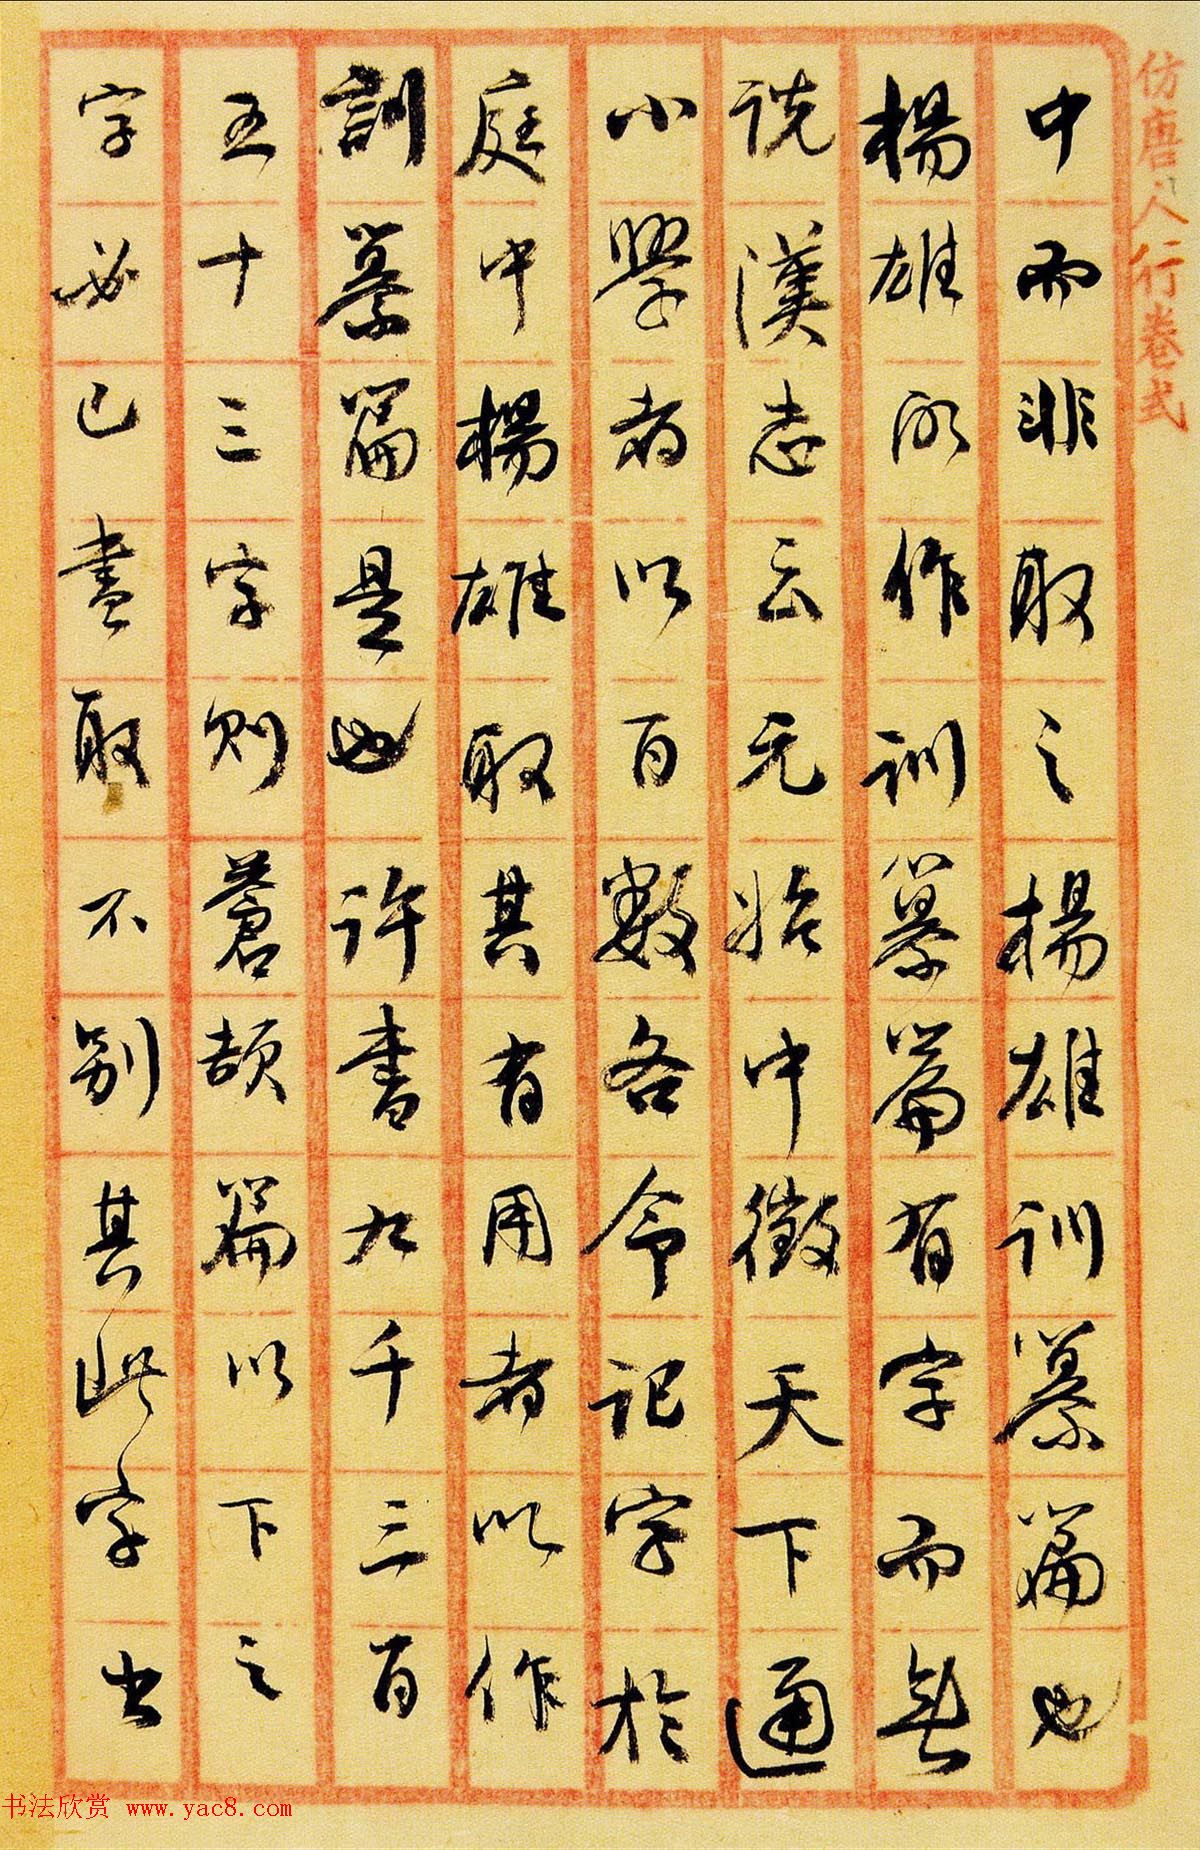 仿唐人行卷式
中而非取之楊雄訓纂篇也
楊雄所作訓纂篇有字而無
說漢志云元始中徵天下通
小學者以百數各令記字於
庭中楊雄取其有用者以作
訓纂篇是也許書九千三百
五十三字則蒼頡篇以下之
字必已盡取不别其此字出
书法欣赏 www.yac8.com